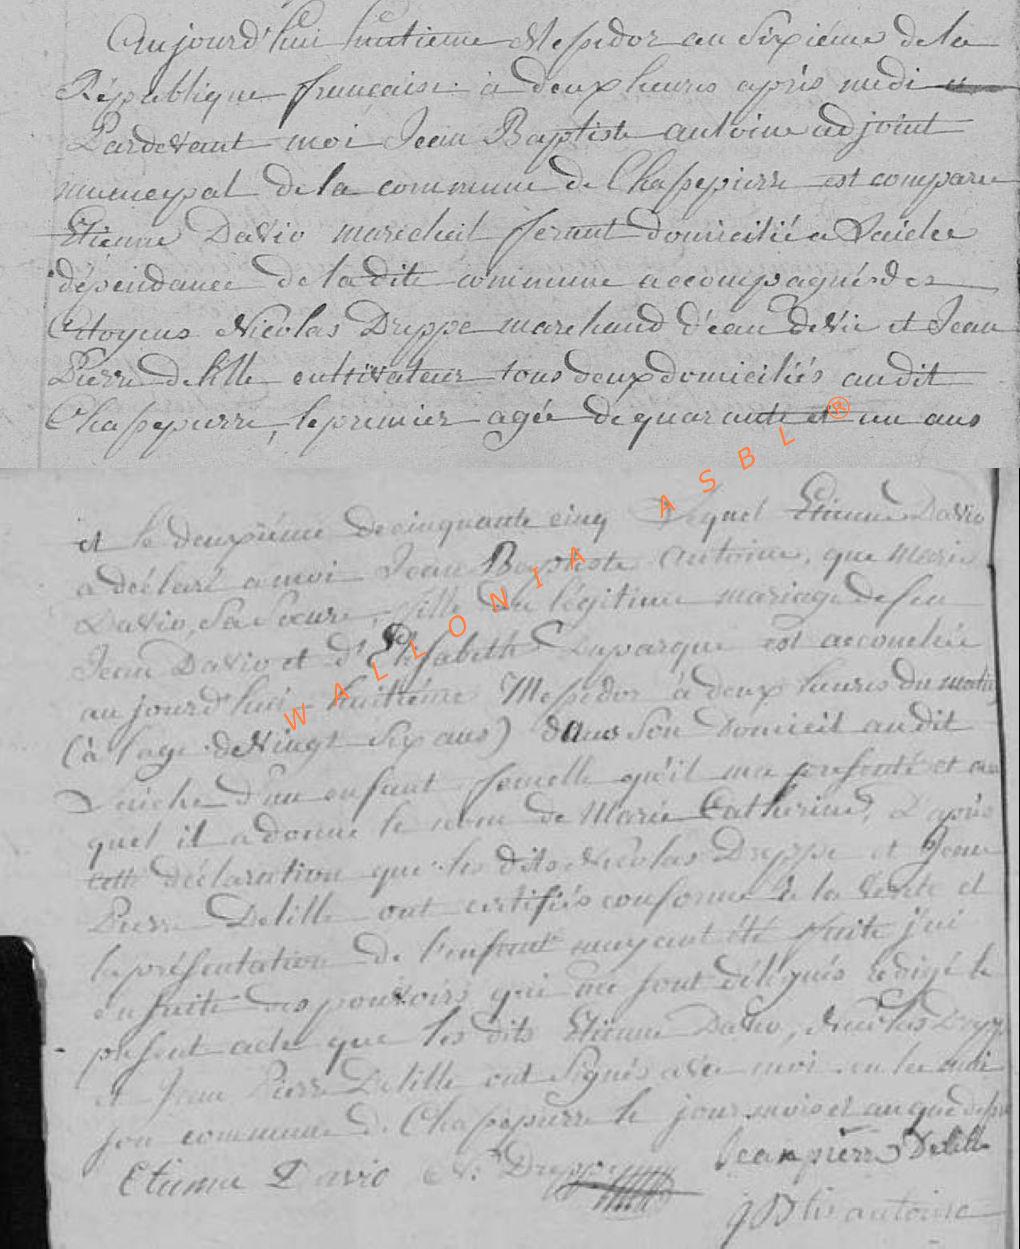 Aujourd'hui huitieme Messidor an Sixiéme de la
République française à deux heures après midi
Pardevant moi Jean Baptiste antoine adjoint
municipal de la commune de Chassepierre est comparu
Etienne Davio marechal ferant domicilié a Laiche
dépendance de la dite commune accompagné des
Citoyens Nicolas Dreppe marchand d'eau de Vie et Jean
Pierre delille cultivateur tous deux domiciliés audit
Chassepierre, le premier agée de quarante et un ans
et le deuxiéme de cinquante cinq Lequel Etienne Davio
a déclaré a moi Jean Baptiste Antoine, que Marie
Davio, Sa Soeure, fille du légitime mariage de feu
Jean Davio et d'Elisabeth Duparque est accouchée
aujourd'hui huitiéme Messidor à deux heures du matin
(à l'age de Vingt Six ans) dans Son domicil audit
Laiche d'un enfant femelle qu'il ma présenté et au
quel il a donné le nom de Marie Catherine, D'après
cette déclaration que les dits Nicolas Dreppe et Jean
Pierre Delille ont certifiés conforme à la Verité et
la présentation de l'enfant mayant été faite j'ai
en suite des pouvoirs qui me sont délégués rédigé le
présent acte que les dits Etienne Davio, Nicolas Drepp
et Jean Pierre Delille ont Signés avec moi en la mai
son commune de Chassepierre le jour mois et an que dessus
Etienne Davio N. Dreppe Jean pierre Delille
J Bte antoine
WALLONIA ASBL ®